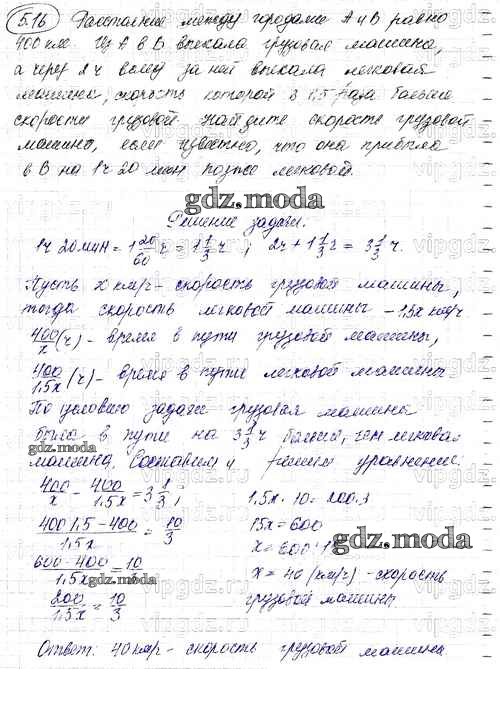 5.16 Расстояние между городами А и В равно
400 км. Из А в В выехала грузовая машина,
а через 2 ч вслед за ней выехала легковая
машина, скорость которой в 1,5 раза больше
скорости грузовой. Найдите скорость грузовой
машины, если известно, что она прибыла
в В на 1 ч 20 мин позже легковой.
gdz.moda
Решение задачи.
1 ч 20 мин = 1 20/60 ч = 1 1/3 ч ; 2 ч + 1 1/3 ч = 3 1/3 ч.
Пусть x км/ч - скорость грузовой машины,
тогда скорость легковой машины - 1,5x км/ч
400/x (ч) - время в пути грузовой машины,
400/1,5x (ч) - время в пути легковой машины.
По условию задачи грузовая машина
была в пути на 3 1/3 ч больше, чем легковая
gdz.moda
машина. Составим и решим уравнение.
400/x - 400/1,5x = 3 1/3 ;
400·1,5-400/1,5x = 10/3
600-400/1,5x = 10/3
200/1,5x = 10/3
1,5x · 10 = 200·3
15x = 600
x = 600 : 1
gdz.moda
x = 40 (км/ч) - скорость
грузовой машины
gdz.moda
Ответ: 40 км/ч - скорость грузовой машины